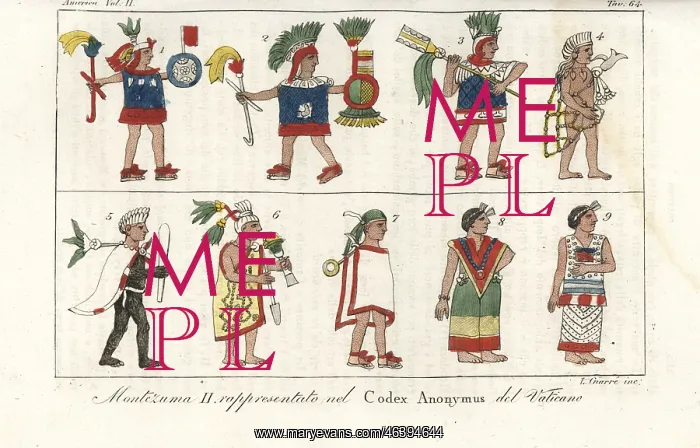 America Vol. II.
Tav. 64.
1
2
3
4
ME
PL
5
6
7
8
9
ME
PL
L. Gnarré inc.
Montezuma II. rappresentato nel Codex Anonymus del Vaticano
www.maryevans.com/46394644